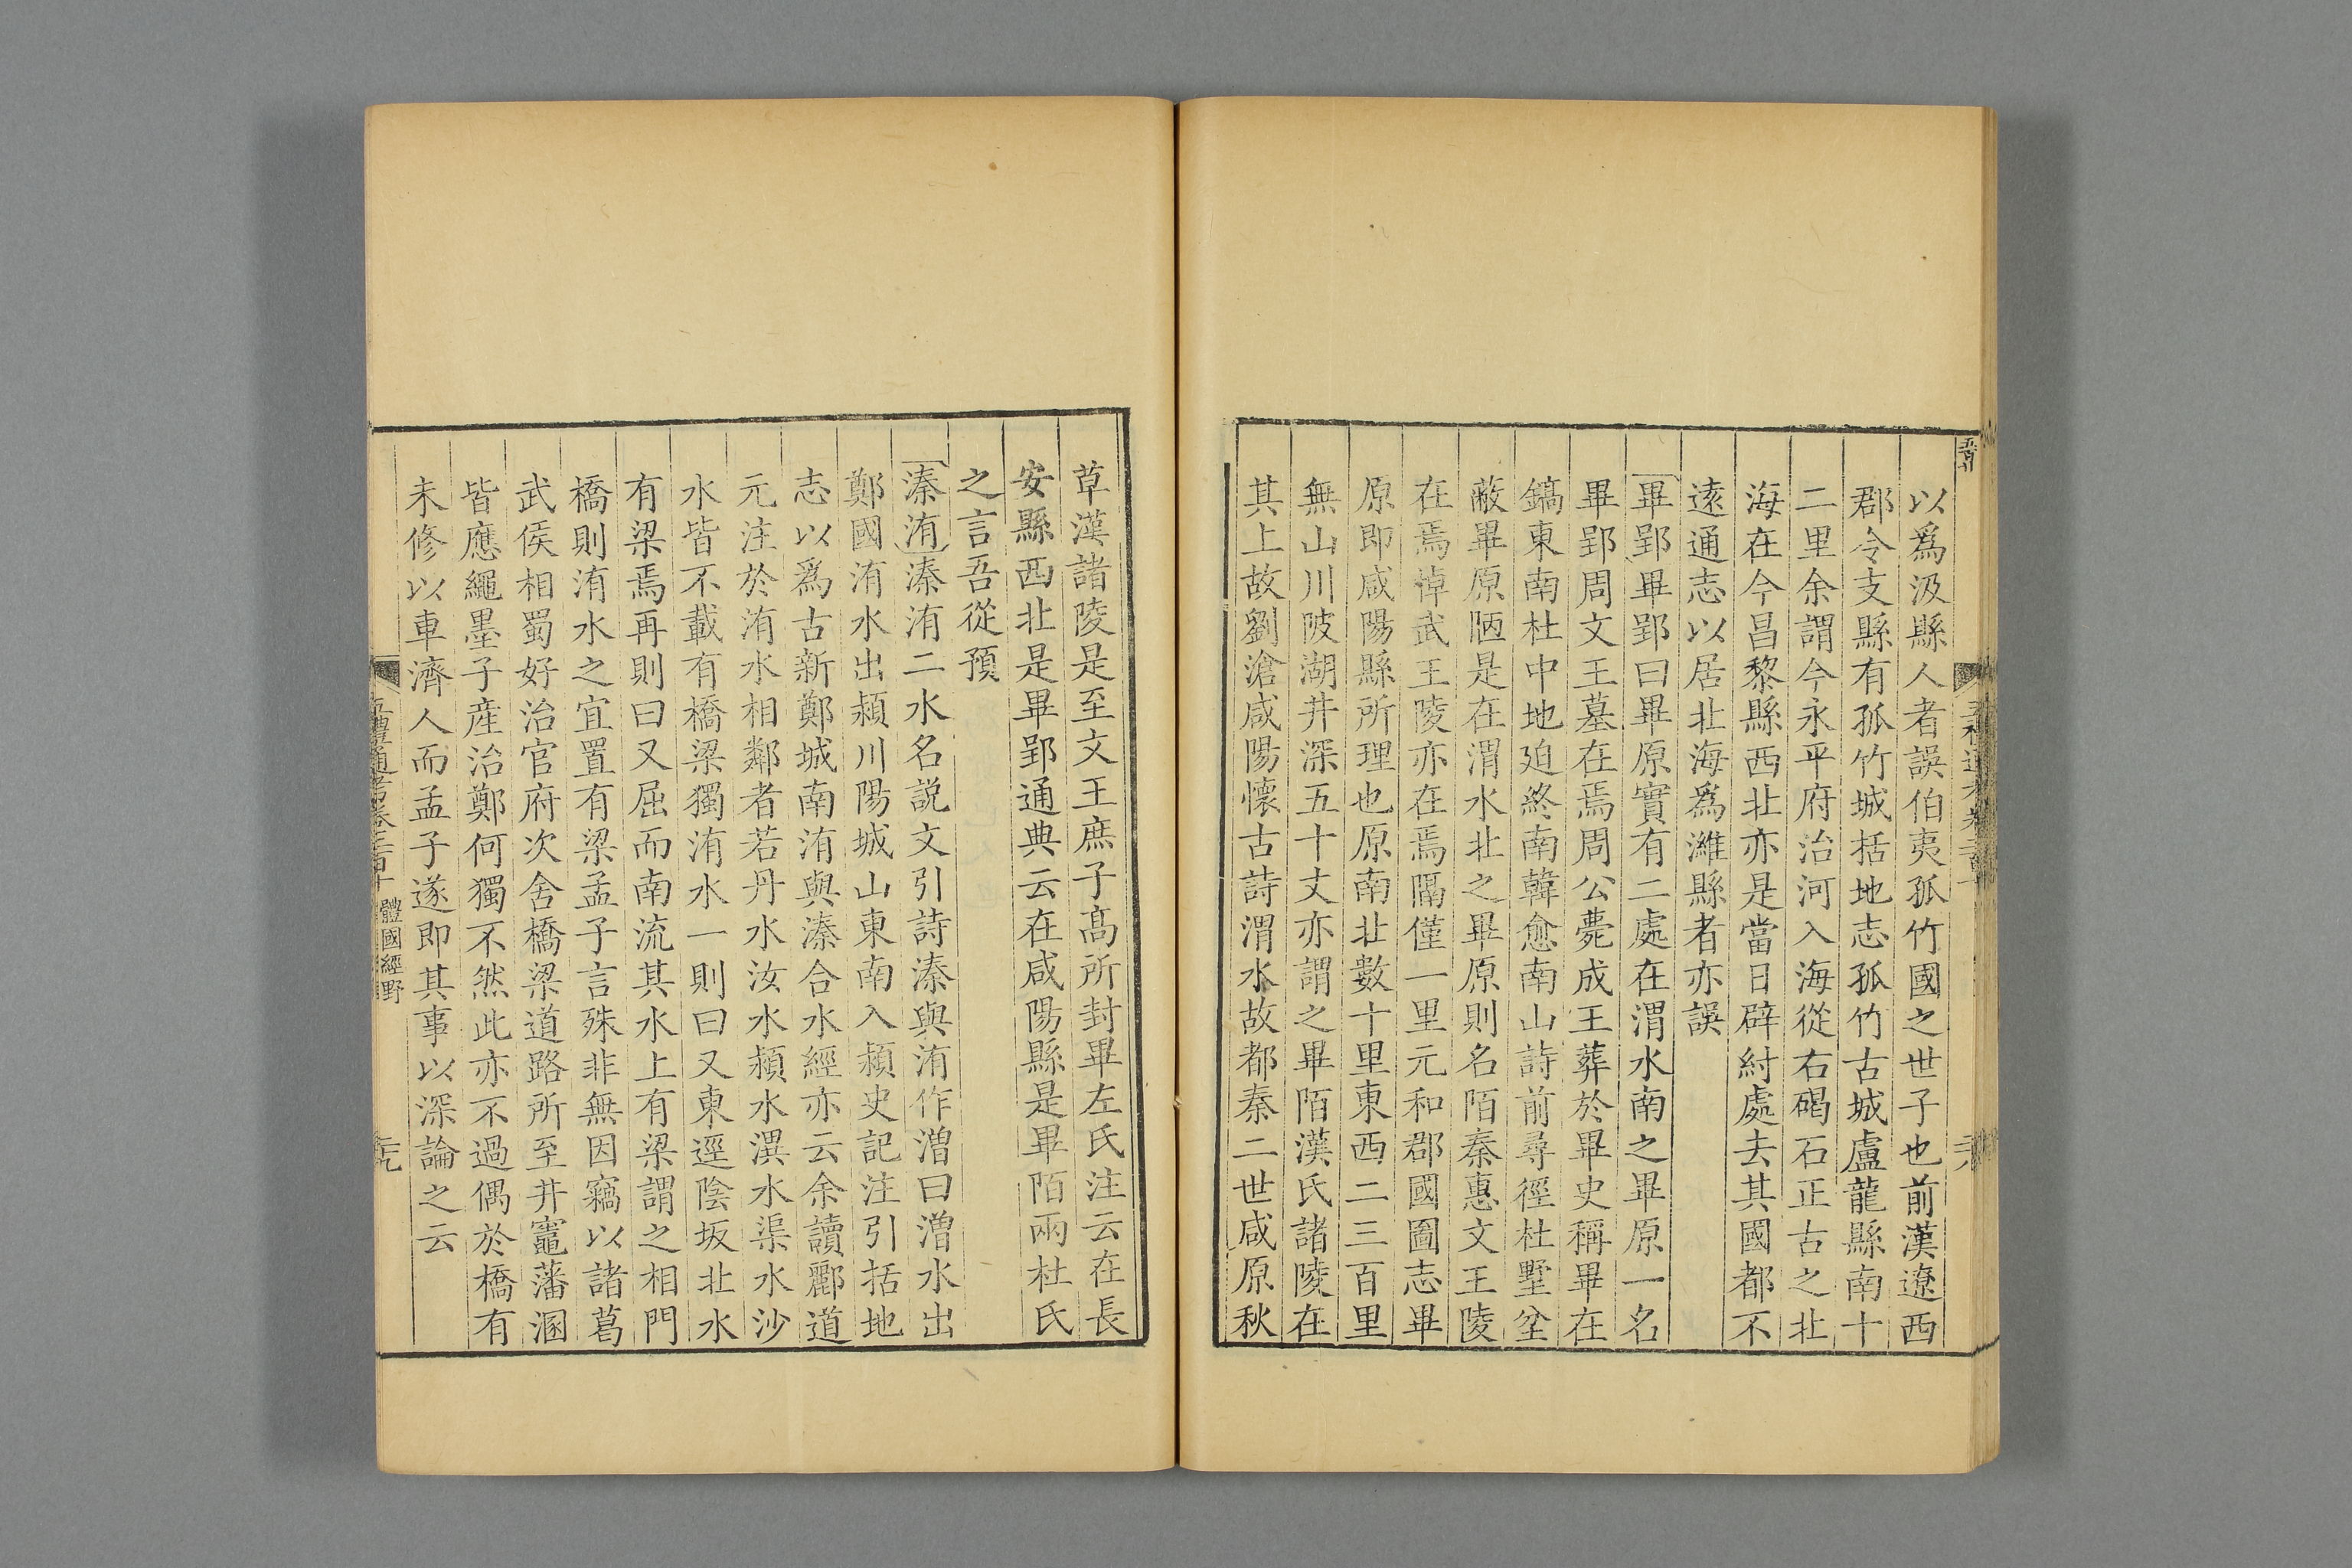 以爲汲縣人者誤伯夷孤竹國之世子也前漢遼西
郡令支縣有孤竹城括地志孤竹古城盧龍縣南十
二里余謂今永平府治河入海從右碣石正古之北
海在今昌黎縣西北亦是當日辟紂處去其國都不
遠通志以居北海爲濰縣者亦誤
畢郢畢郢曰畢原實有二處在渭水南之畢原一名
畢郢周文王墓在焉周公薨成王葬於畢史稱畢在
鎬東南杜中地迫終南韓愈南山詩前尋徑杜墅坌
蔽畢原陋是在渭水北之畢原則名陌秦惠文王陵
在焉悼武王陵亦在焉隔僅一里元和郡國圖志畢
原即咸陽縣所理也原南北數十里東西二三百里
無山川陂湖井深五十丈亦謂之畢陌漢氏諸陵在
其上故劉滄咸陽懷古詩渭水故都秦二世咸原秋
草漢諸陵是至文王庶子高所封畢左氏注云在長
安縣西北是畢郢通典云在咸陽縣是畢陌兩杜氏
之言吾從預
溱洧溱洧二水名説文引詩溱與洧作潧曰潧水出
鄭國洧水出潁川陽城山東南入潁史記注引括地
志以爲古新鄭城南洧與溱合水經亦云余讀酈道
元注於洧水相鄰者若丹水汝水潁水潩水渠水沙
水皆不載有橋梁獨洧水一則曰又東逕陰坂北水
有梁焉再則曰又屈而南流其水上有梁謂之相門
橋則洧水之宜置有梁孟子言殊非無因竊以諸葛
武侯相蜀好治官府次舍橋梁道路所至井竈藩溷
皆應繩墨子産治鄭何獨不然此亦不過偶於橋有
未修以車濟人而孟子遂即其事以深論之云
體國經野